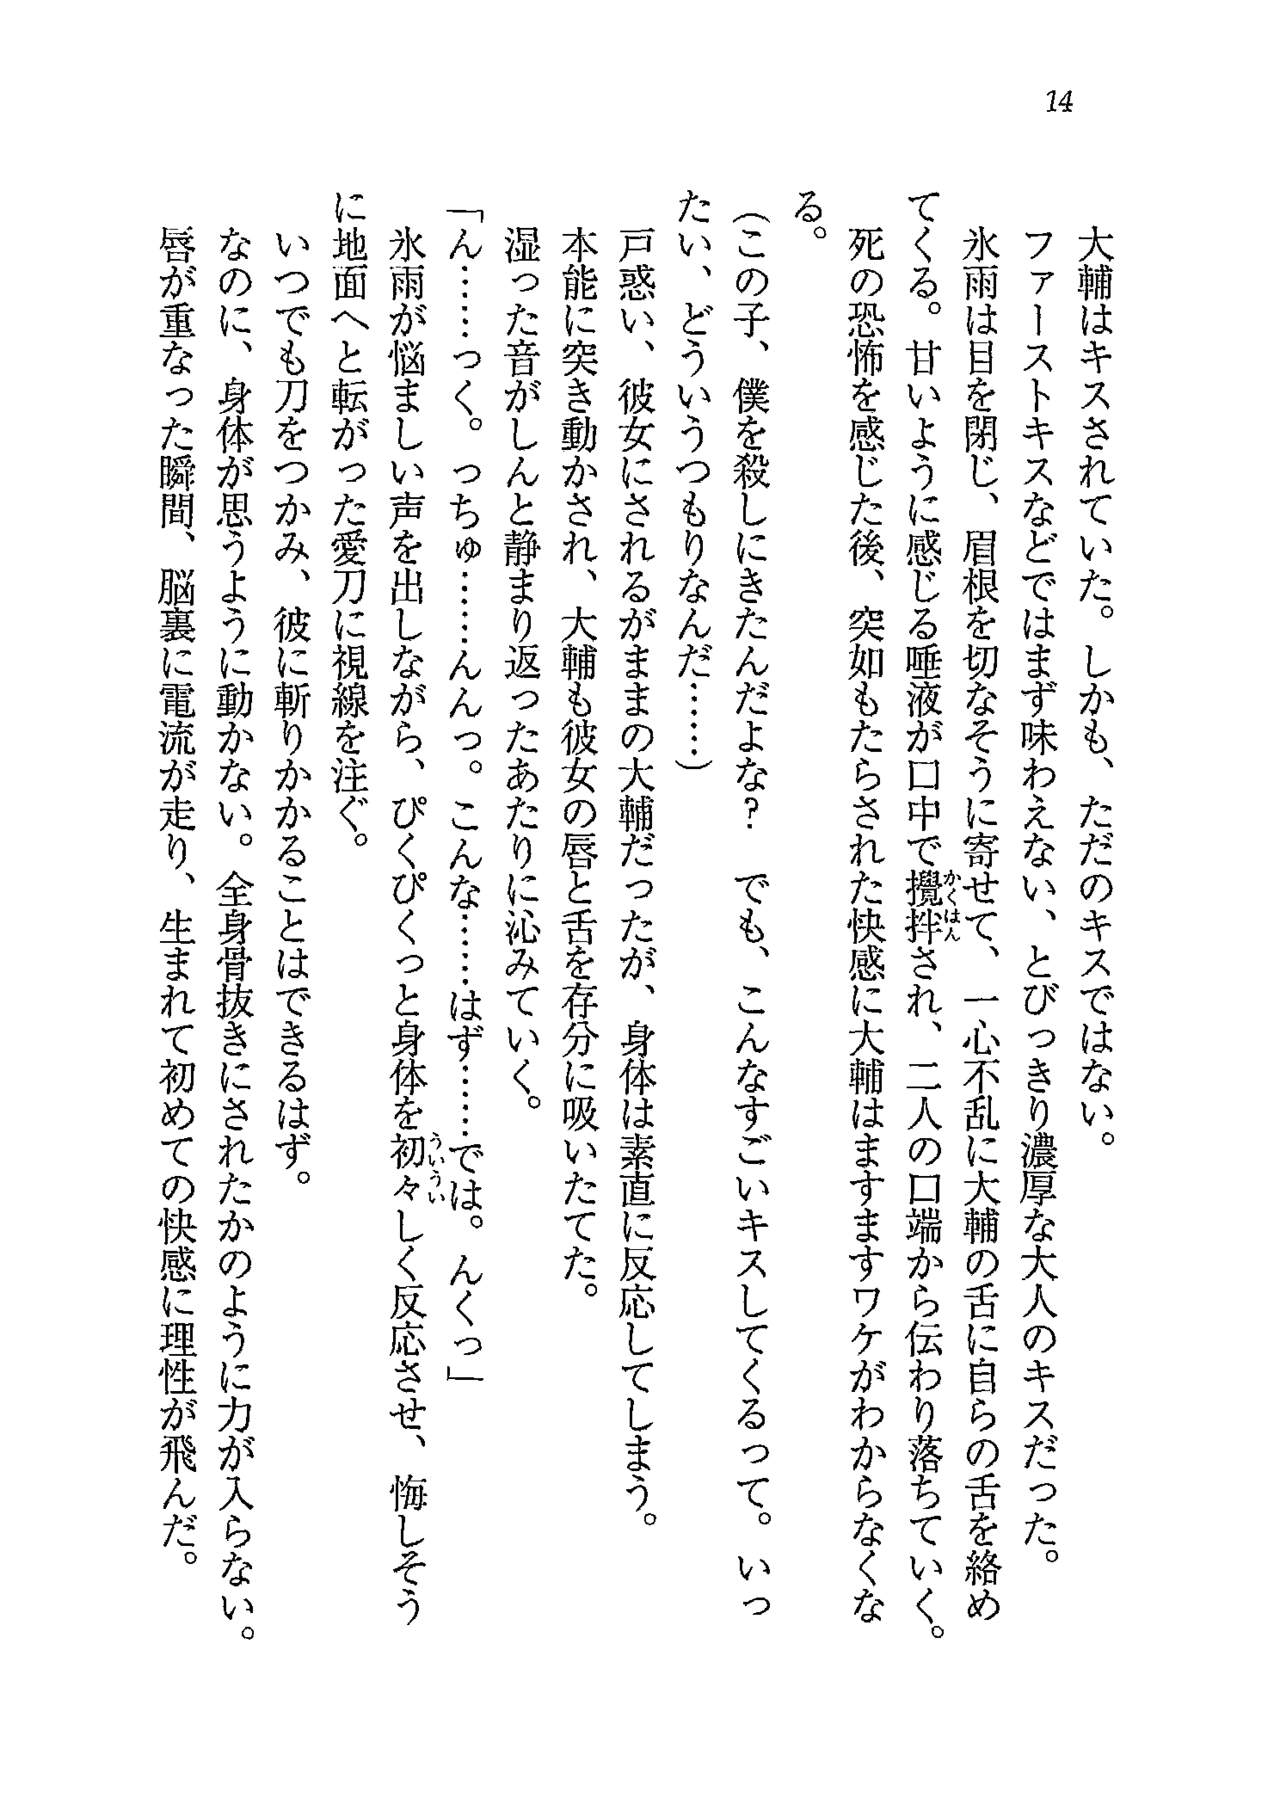 14
大輔はキスされていた。しかも、ただのキスではない。
ファーストキスなどではまず味わえない、とびっきり濃厚な大人のキスだった。
氷雨は目を閉じ、眉根を切なそうに寄せて、一心不乱に大輔の舌に自らの舌を絡め
てくる。甘いように感じる唾液が口中で攪拌され、二人の口端から伝わり落ちていく。
かくはん
死の恐怖を感じた後、突如もたらされた快感に大輔はますますワケがわからなくな
る。
(この子、僕を殺しにきたんだよな?　でも、こんなすごいキスしてくるって。いっ
たい、どういうつもりなんだ……)
戸惑い、彼女にされるがままの大輔だったが、身体は素直に反応してしまう。
本能に突き動かされ、大輔も彼女の唇と舌を存分に吸いたてた。
湿った音がしんと静まり返ったあたりに沁みていく。
「ん……っく。っちゅ……んんっ。こんな……はず……では。んくっ」
氷雨が悩ましい声を出しながら、ぴくぴくっと身体を初々しく反応させ、悔しそう
ういうい
に地面へと転がった愛刀に視線を注ぐ。
いつでも刀をつかみ、彼に斬りかかることはできるはず。
なのに、身体が思うように動かない。全身骨抜きにされたかのように力が入らない。
唇が重なった瞬間、脳裏に電流が走り、生まれて初めての快感に理性が飛んだ。